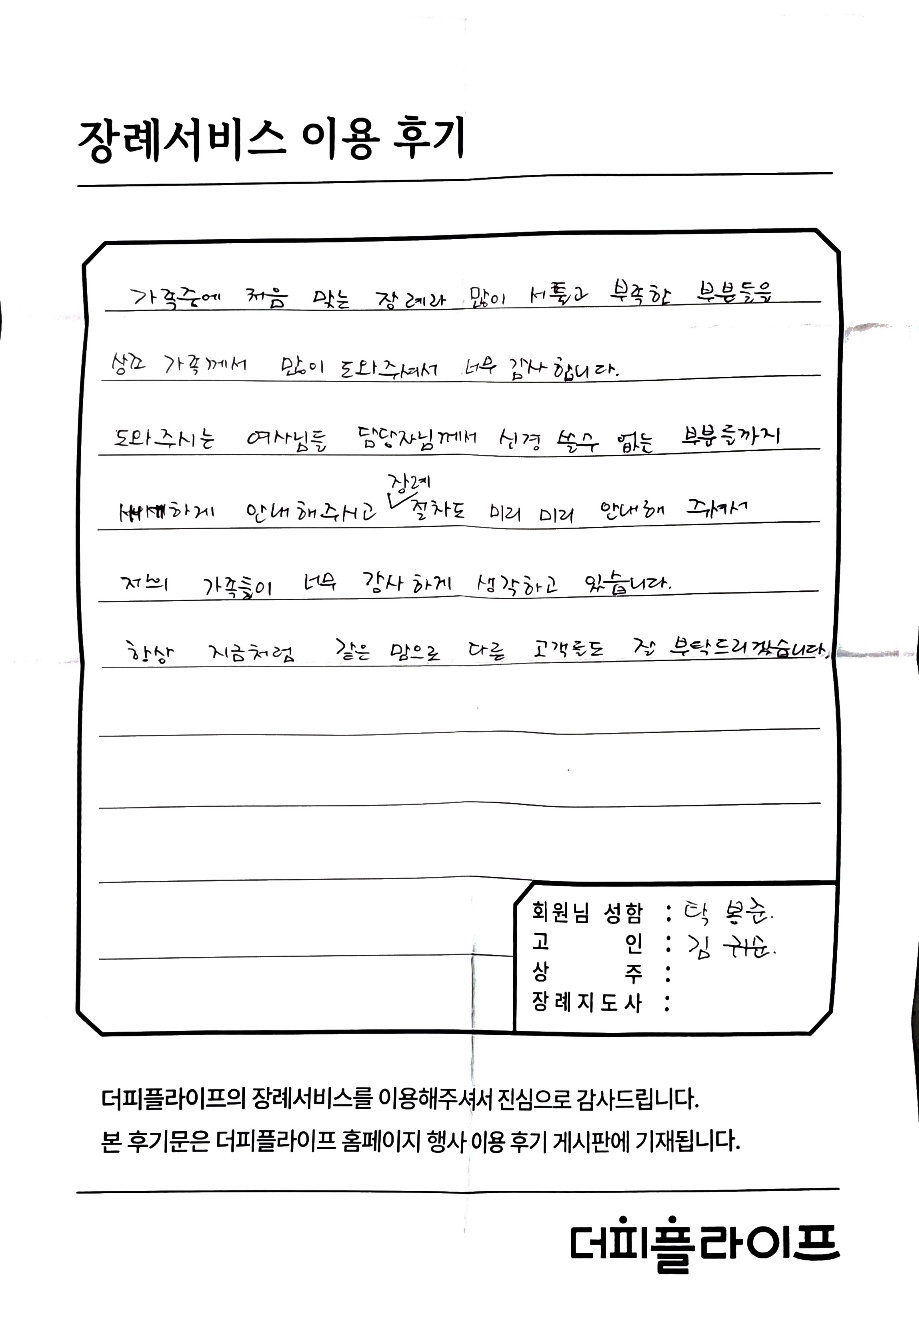 장례서비스 이용 후기
가족중에 처음 맞는 장례라 많이 서툴고 부족한 부분들을
상조 가족께서 많이 도와주셔서 너무 감사합니다.
도와주시는 여사님들 담당자님께서 신경 쓸수 없는 부분들까지
세세하게 안내해주시고 장례 절차도 미리 미리 안내해 주셔서
저희 가족들이 너무 감사하게 생각하고 있습니다.
항상 지금처럼 같은 맘으로 다른 고객들도 잘 부탁드리겠습니다.
회원님 성함 : 탁봉준.
고 인 : 김귀순.
상 주 :
장례지도사 :
더피플라이프의 장례서비스를 이용해주셔서 진심으로 감사드립니다.
본 후기문은 더피플라이프 홈페이지 행사 이용 후기 게시판에 기재됩니다.
더피플라이프